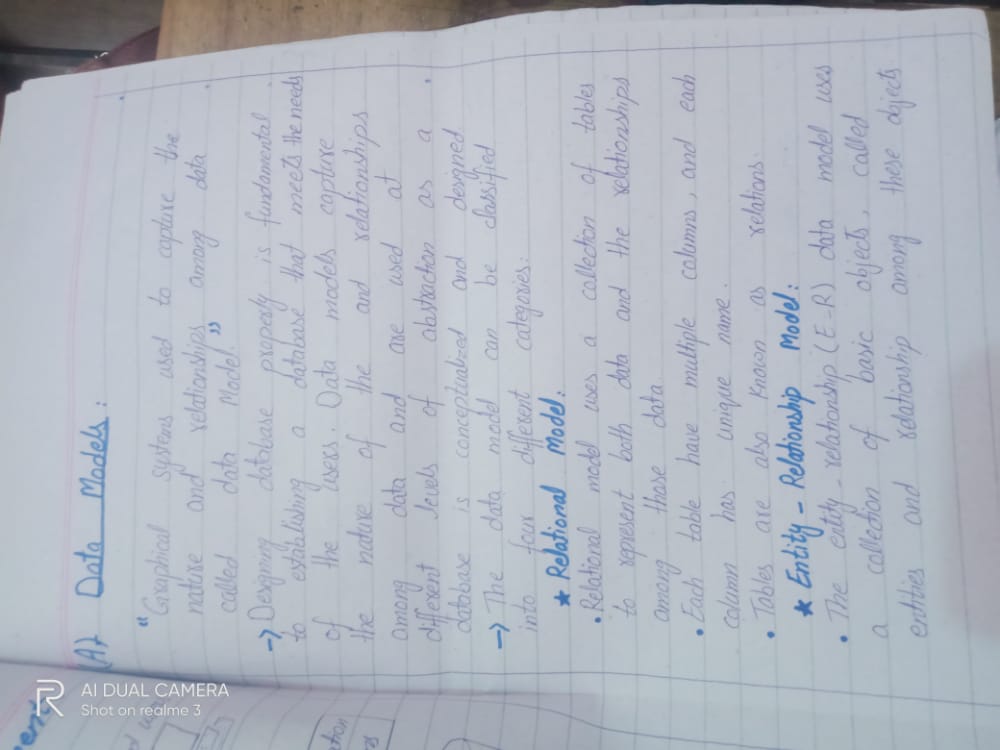 (A) Data Models :
"Graphical systems used to capture the
nature and relationships among data
called data Model."
→ Designing database properly is fundamental
to establishing a database that meets the needs
of the users. Data models capture
the nature of the and relationships
among data and are used at
different levels of abstraction as a
database is conceptualized and designed
→ The data model can be classified
into four different categories:
★ Relational Model:
• Relational model uses a collection of tables
to represent both data and the relationships
among those data.
• Each table have multiple columns, and each
column has unique name.
• Tables are also known as relations.
★ Entity - Relationship Model:
• The entity-relationship (E-R) data model uses
a collection of basic objects, called
entities and relationship among these objects
AI DUAL CAMERA
Shot on realme 3